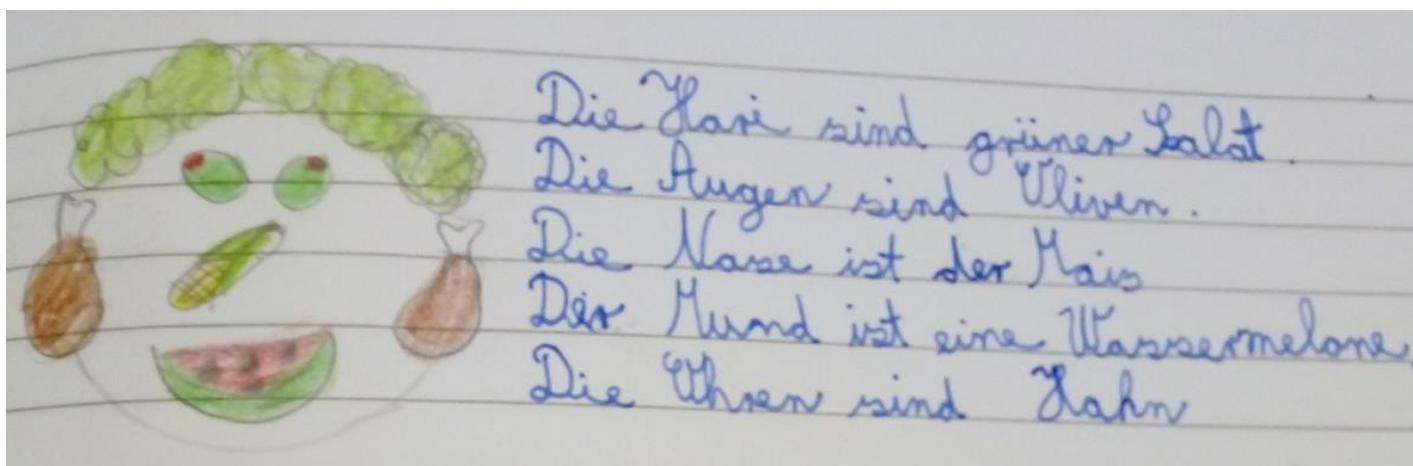 Die Hare sind grüner Salat.
Die Augen sind Oliven.
Die Nase ist der Mais
Der Mund ist eine Wassermelone
Die Ohren sind Hahn